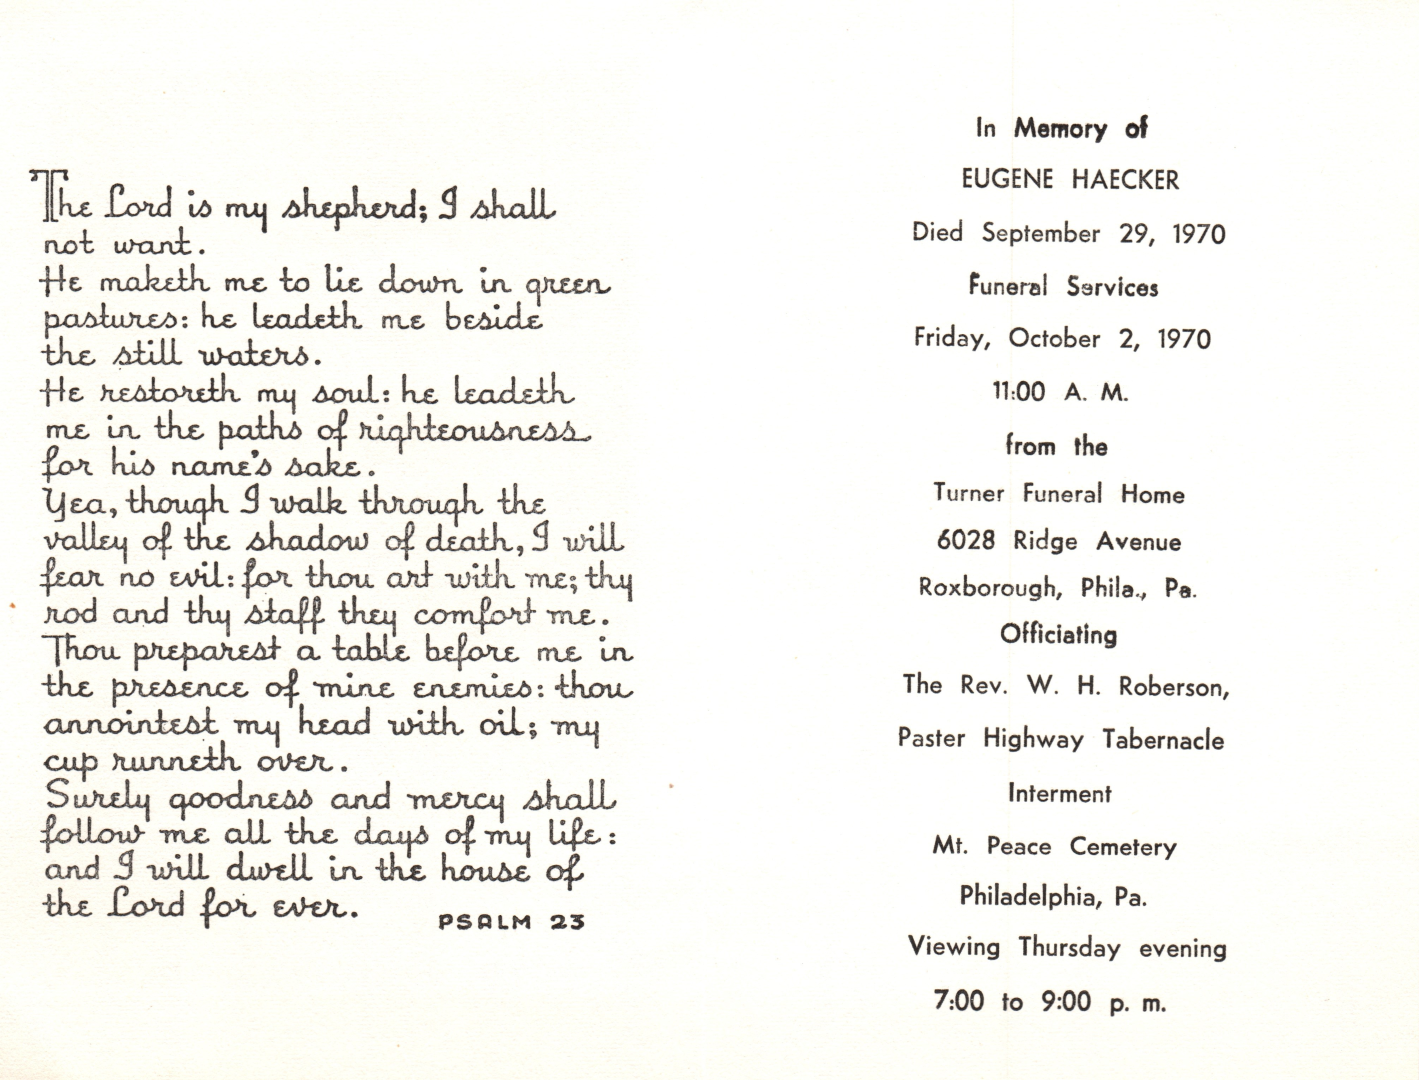 The Lord is my shepherd; I shall
not want.
He maketh me to lie down in green
pastures: he leadeth me beside
the still waters.
He restoreth my soul: he leadeth
me in the paths of righteousness
for his name's sake.
Yea, though I walk through the
valley of the shadow of death, I will
fear no evil: for thou art with me; thy
rod and thy staff they comfort me.
Thou preparest a table before me in
the presence of mine enemies: thou
annointest my head with oil; my
cup runneth over.
Surely goodness and mercy shall
follow me all the days of my life:
and I will dwell in the house of
the Lord for ever.
PSALM 23
In Memory of
EUGENE HAECKER
Died September 29, 1970
Funeral Services
Friday, October 2, 1970
11:00 A. M.
from the
Turner Funeral Home
6028 Ridge Avenue
Roxborough, Phila., Pa.
Officiating
The Rev. W. H. Roberson,
Paster Highway Tabernacle
Interment
Mt. Peace Cemetery
Philadelphia, Pa.
Viewing Thursday evening
7:00 to 9:00 p. m.